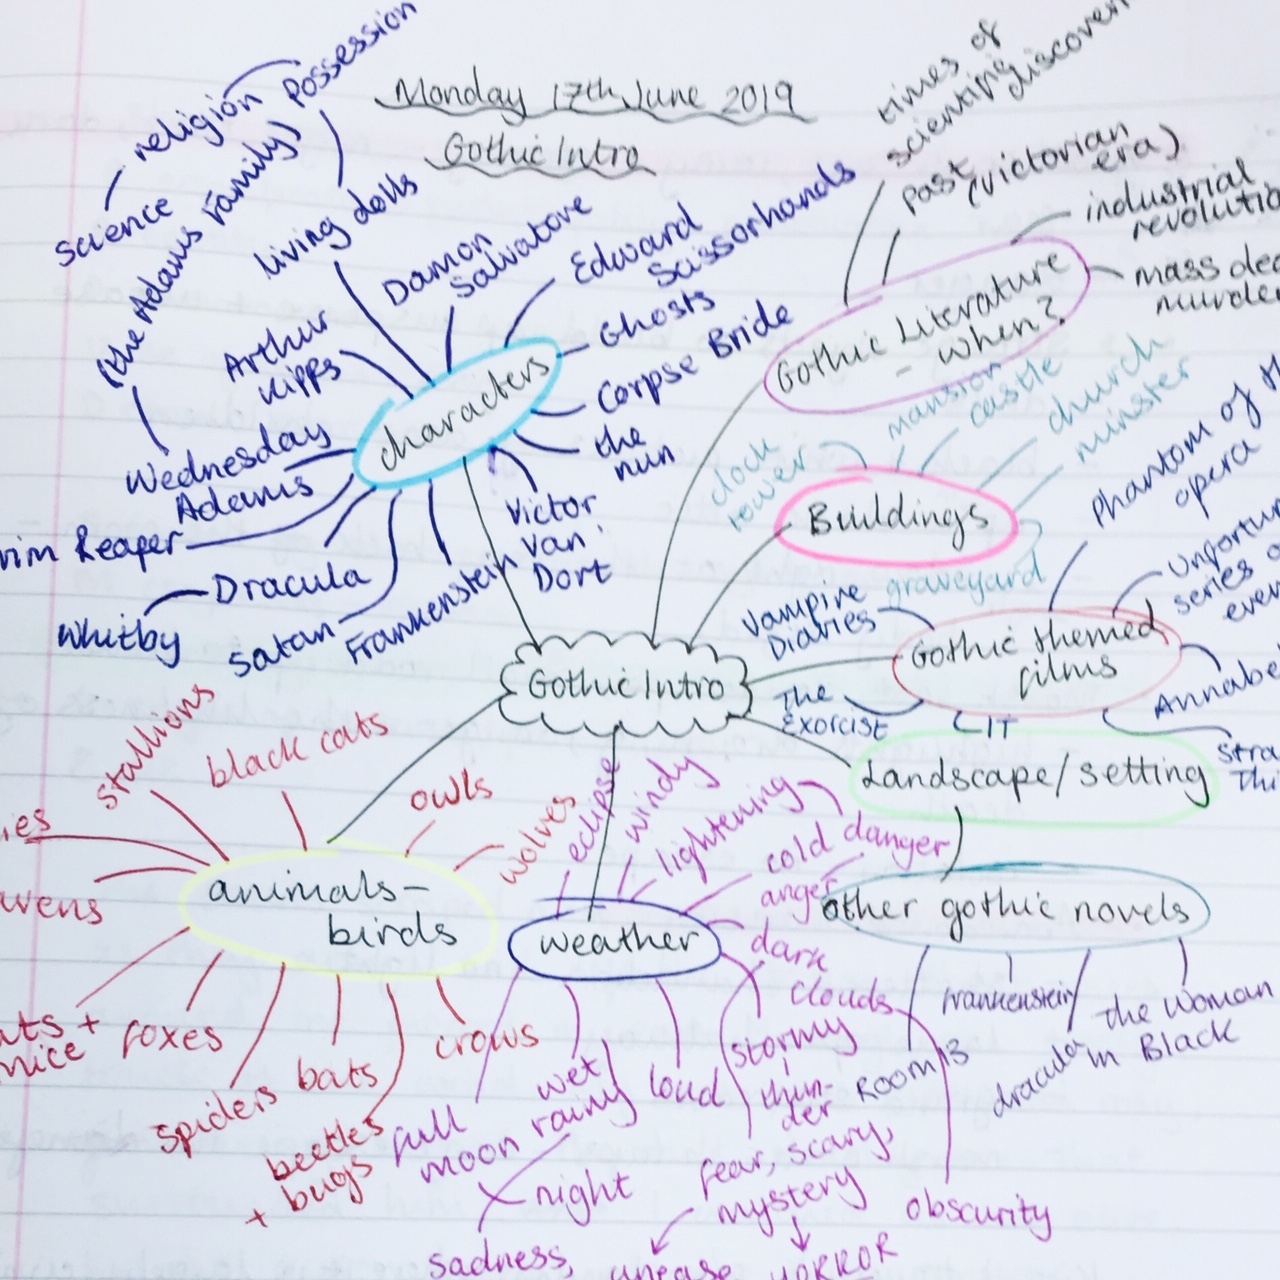 Monday 17th June 2019
Gothic Intro
Possession
religion
science
living dolls
(the Adams Family)
Wednesday
Adams
Arthur
Kipps
Damon
Salvatore
Edward
Scissorhands
Ghosts
Corpse Bride
the
nun
Victor
Van
Dort
Frankenstein
Satan
Dracula
Whitby
rim Reaper
characters
times of
scientific
discover
past (victorian
era)
industrial
revolutio
mass dea
murder
Gothic Literature
- when?
clock
tower
mansion
castle
church
minster
Buildings
graveyard
Phantom of th
opera
Unfortun
series o
even
Vampire
Diaries
Gothic themed
films
The
Exorcist
IT
Annabe
Stra
Thi
Gothic Intro
Landscape/setting
stallions
black cats
owls
wolves
ies
vens
animals-
birds
ats +
mice
foxes
spiders
bats
beetles
+ bugs
crows
eclipse
windy
lightening
danger
cold
anger
dark
clouds
weather
full
moon
wet
rainy
loud
stormy
thun-
der
night
sadness,
fear, scary,
mystery
unease
HORROR
obscurity
other gothic novels
Room 13
Frankenstein
dracula
the Woman
in Black